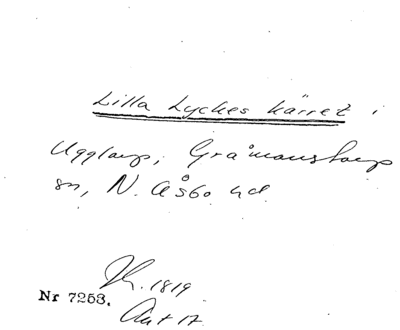 Lilla Lyckes kärret i
Ugglarp, Gråmanstorps
sn, N. Åsbo hd
1819
Nr 7253.
Akt 17